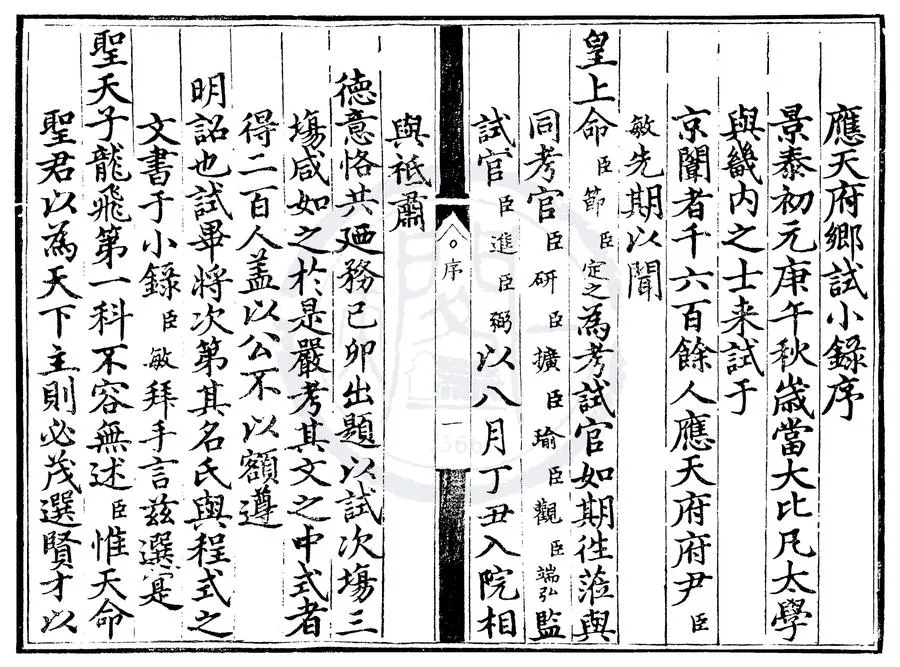 應天府鄉試小錄序
景泰初元庚午秋歲當大比凡太學
與畿内之士来試于
京闈者千六百餘人應天府府尹臣
敏先期以聞
皇上命臣節臣定之為考試官如期徃蒞與
同考官臣研臣擴臣瑜臣觀臣端弘監
試官臣進臣弼以八月丁丑入院相
序
一
與祗肅
德意恪共廼務已卯出題以試次塲三
塲咸如之於是嚴考其文之中式者
得二百人盖以公不以額遵
明詔也試畢將次第其名氏與程式之
文書于小錄臣敏拜手言兹選寔
聖天子龍飛第一科不容無述臣惟天命
聖君以為天下主則必茂選賢才以